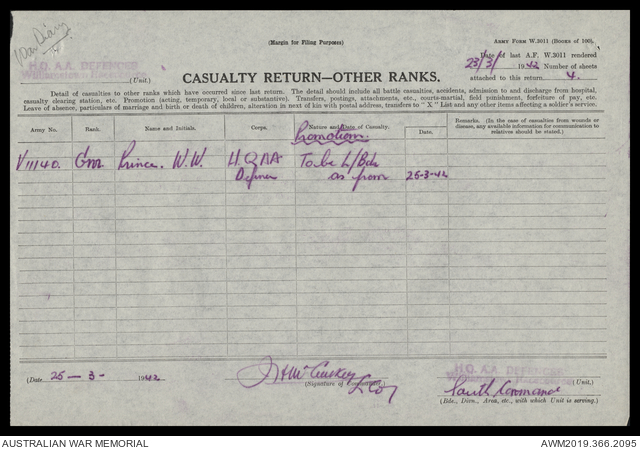 War Diary
(Margin for Filing Purposes)
Army Form W.3011 (Books of 100).
H.Q. A.A. DEFENCES
(Unit.)
Date of last A.F. W.3011 rendered
23/3/1942 Number of sheets
attached to this return 4.
CASUALTY RETURN—OTHER RANKS.
Detail of casualties to other ranks which have occurred since last return. The detail should include all battle casualties, accidents, admission and discharge from hospital,
casualty clearing station, etc. Promotion (acting, temporary, local or substantive). Transfers, postings, attachments, etc., courts-martial, field punishment, forfeiture of pay, etc.
Leave of absence, particulars of marriage and birth or death of children, alteration in next of kin with postal address, transfers to "X" List and any other items affecting a soldier's service.
Army No. Rank. Name and Initials. Corps. Nature and Date of Casualty. Date. Remarks. (In the case of casualties from wounds or
disease, any available information for communication to
relatives should be stated.)
Promotion.
V11140. Gnr Prince. W.W. H.Q AA To be L/Bdr
Defences as from 25-3-42
(Date 25 — 3 - 1942
(Signature of Commander.)
H.Q. A.A. DEFENCES
(Unit.)
South Command
(Bde., Divn., Area, etc., with which Unit is serving.)
AUSTRALIAN WAR MEMORIAL
AWM2019.366.2095